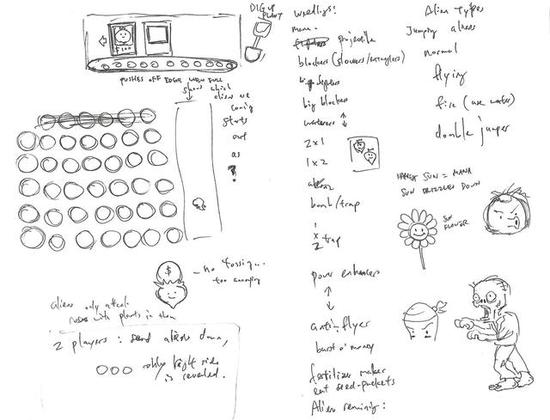 DIG UP
PLANT
PUSHES OFF EDGE WHEN FULL
shows which
aliens are
coming
starts
out
as
?
$
— no tossing...
too annoying
aliens only attack
rows with plants in them
2 players: send aliens down,
only right side
is revealed.
weedlings:
mana
projectile
blockers (slowers/entanglers)
big blockers
↕
2x1
1x2
bomb/trap
1
x
2 trap
power enhancers
↕
anti-flyer
burst o' money
fertilizer maker
eat seed-packets
Alien remains:
Alien types
Jumping aliens
normal
flying
fire (use water)
double jumper
SUN = MANA
SUN DRIZZLES DOWN
SUN
FLOWER